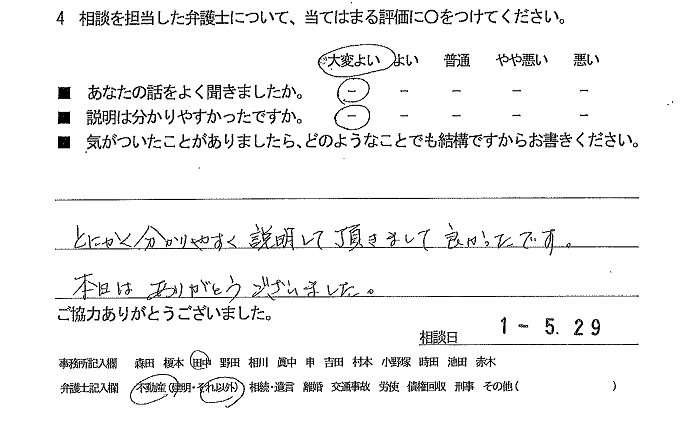 4 相談を担当した弁護士について、当てはまる評価に○をつけてください。
大変よい よい 普通 やや悪い 悪い
■ あなたの話をよく聞きましたか。 － － － － －
■ 説明は分かりやすかったですか。 － － － － －
■ 気がついたことがありましたら、どのようなことでも結構ですからお書きください。
とにかく分かりやすく説明して頂きまして良かったです。
本日はありがとうございました。
ご協力ありがとうございました。
相談日 1-5.29
事務所記入欄 森田 榎本 田中 野田 相川 眞中 申 吉田 村本 小野塚 時田 池田 赤木
弁護士記入欄 不動産(建明・それ以外) 相続・遺言 離婚 交通事故 労使 債権回収 刑事 その他( )